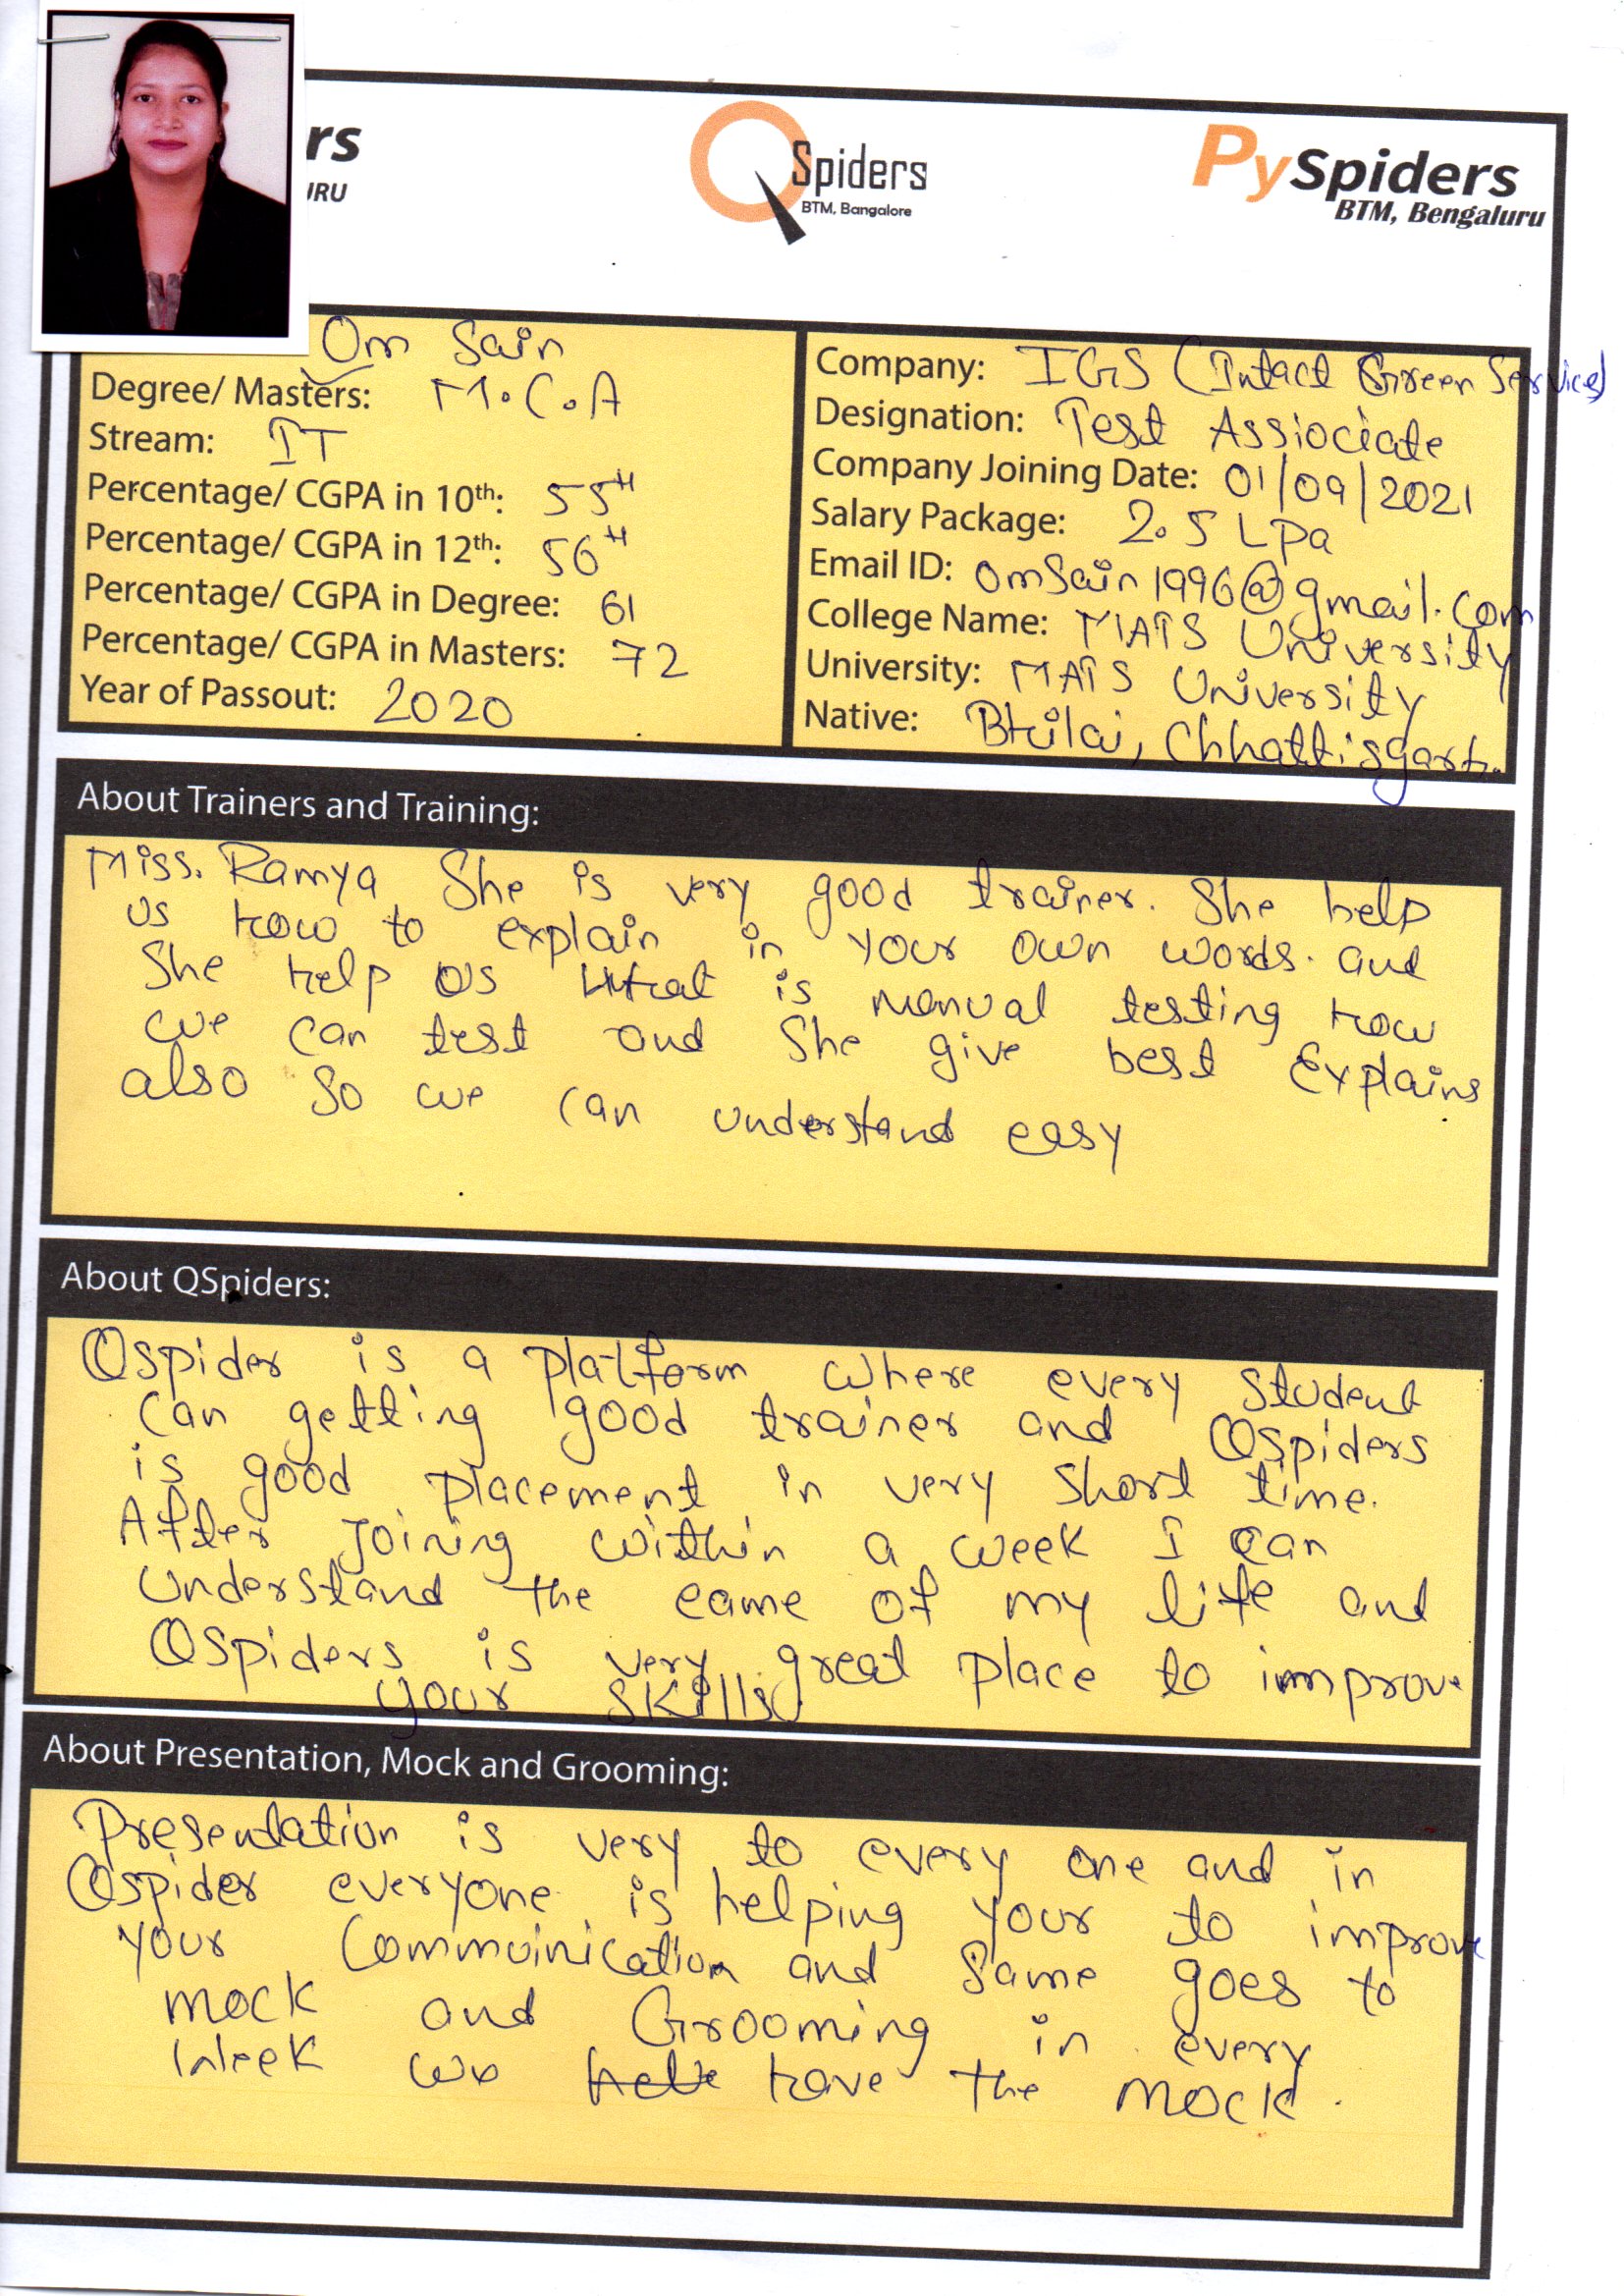 rs
URU
QSpiders
BTM, Bangalore
PySpiders
BTM, Bengaluru
Om Sain
Degree/ Masters: M.C.A
Stream: IT
Percentage/ CGPA in 10th: 55th
Percentage/ CGPA in 12th: 56th
Percentage/ CGPA in Degree: 61
Percentage/ CGPA in Masters: 72
Year of Passout: 2020
Company: IGS (Intact Green Services)
Designation: Test Assiociate
Company Joining Date: 01/09/2021
Salary Package: 2.5 LPa
Email ID: omsain1996@gmail.com
College Name: MATS University
University: MATS University
Native: Bhilai, Chhattisgarh.
About Trainers and Training:
Miss. Ramya She is very good trainer. She help
us how to explain in your own words. and
She help us What is manual testing how
we can test and She give best Explains
also So we can understand easy
About QSpiders:
Qspider is a platform where every Student
Can getting good trainer and Qspiders
is good placement in very short time.
After Joining within a week I can
Understand the came of my life and
QSpiders is very great place to improve
your skills
About Presentation, Mock and Grooming:
Presentation is very to every one and in
Qspider everyone is helping your to improve
your Commuinication and Same goes to
mock and Grooming in every
Week we have the mock.